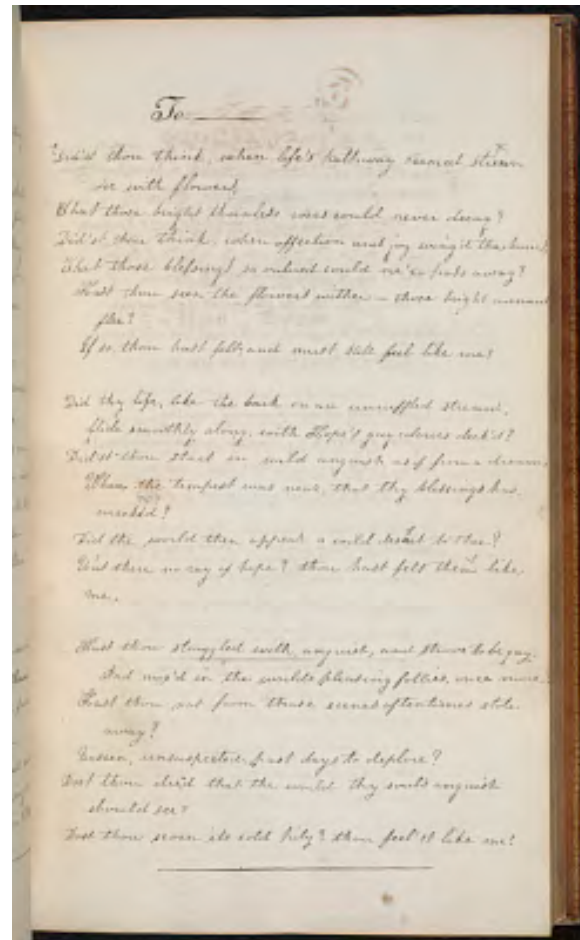 To
Did'st thou think, when life's pathway seemed strewn
o'er with flowers,
That those bright thornless roses could never decay?
Did'st thou think, when affection and joy wing'd the hours,
That those blessings so valued could ne'er fade away?
Hast thou seen the flowers wither – those bright moments
flee?
If so, thou hast felt, and must still feel like me!
Did thy life, like the bark on an unruffled stream,
Glide smoothly along, with Hope's gay colours deck'd?
Did'st thou start in wild anguish as if from a dream,
When the tempest was near, that thy blessings has
wreck'd!
Did the world then appear a wild desert to thee?
Was there no ray of hope? thou hast felt then like
me.
Hast thou struggled with anguish, and strove to be gay.
And mix'd in the world's pleasing follies, once more.
Hast thou not from those scenes oftentimes stole
away?
Unseen, unsuspected, past days to deplore?
Dost thou dread that the world thy soul's anguish
should see?
Dost thou scorn its cold pity? thou feel'st like me!